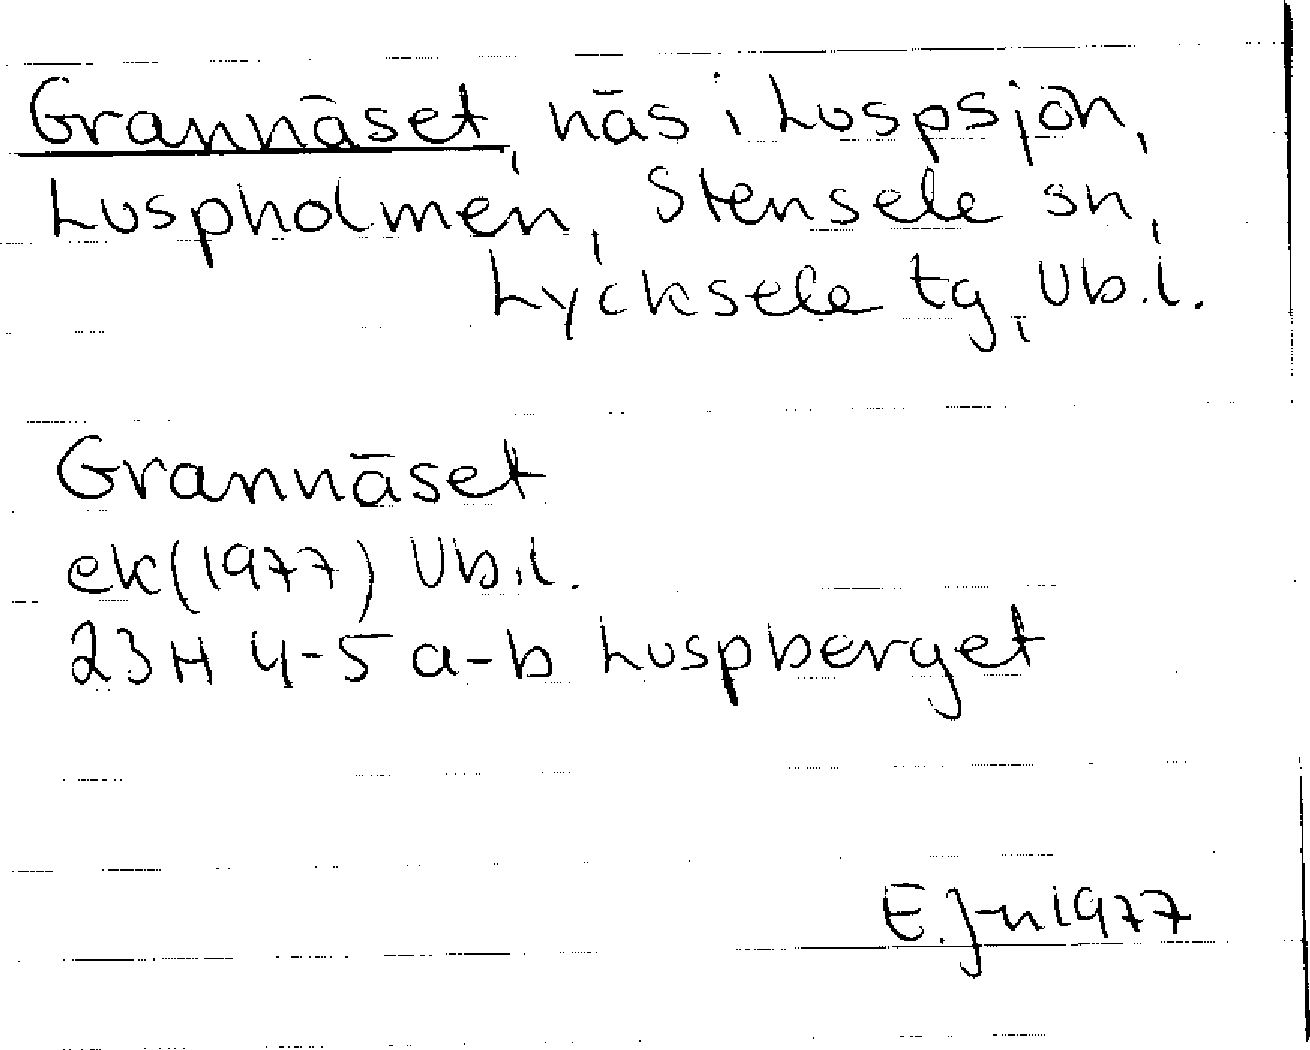 Grannäset, näs i Luspsjön,
Luspholmen, Stensele sn,
Lycksele tg, Vb.l.
Grannäset
ek (1977) Vb.l.
23H 4-5 a-b Luspberget
E.J-n 1977